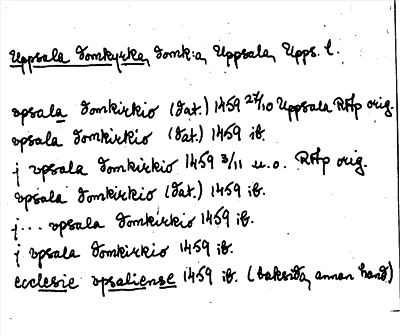 Uppsala domkyrka, domk:a, Uppsala, Upps. l.
vpsala domkirkio (dat.) 1459 27/10 Uppsala RAp orig.
vpsala domkirkio (dat.) 1459 ib.
j vpsala domkirkio 1459 3/11 u.o. RAp orig.
vpsala domkirkio (dat.) 1459 ib.
j... vpsala domkirkio 1459 ib.
j vpsala domkirkio 1459 ib.
ecclesie vpsaliense 1459 ib. (baksida, annan hand)